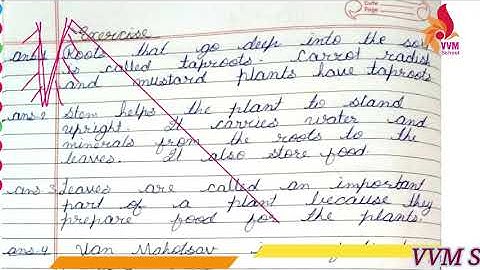 Date
Page
VVM
School
Exercise
ans 1 Roots that go deep into the soil
is called taproots. Carrot radish
and mustard plants have taproots
ans-2 Stem helps the plant to stand
upright. It carries water and
minerals from the roots to the
leaves. It also store food.
ans 3 Leaves are called an important
part of a plant because they
prepare food for the plants.
ans-4 Van Mahotsav
VVM S